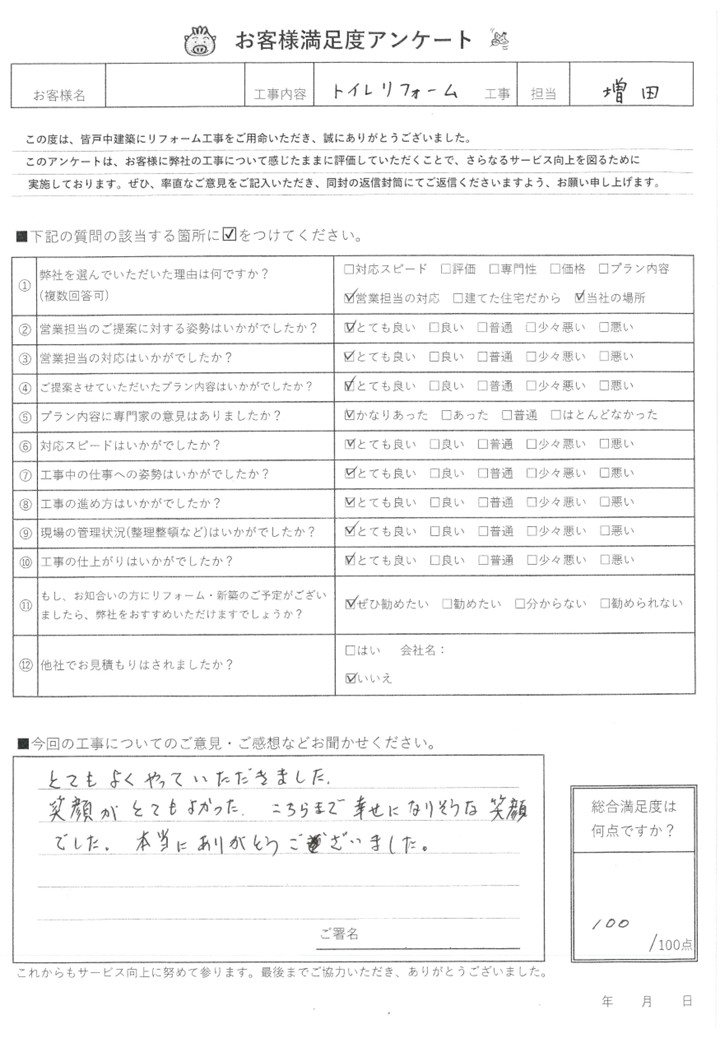 お客様満足度アンケート
お客様名 工事内容 トイレリフォーム 工事 担当 増田
この度は、皆戸中建築にリフォーム工事をご用命いただき、誠にありがとうございました。
このアンケートは、お客様に弊社の工事について感じたままに評価していただくことで、さらなるサービス向上を図るために
実施しております。ぜひ、率直なご意見をご記入いただき、同封の返信封筒にてご返信くださいますよう、お願い申し上げます。
■下記の質問の該当する箇所に☑をつけてください。
① 弊社を選んでいただいた理由は何ですか？
(複数回答可)
□対応スピード □評価 □専門性 □価格 □プラン内容
☑営業担当の対応 □建てた住宅だから ☑当社の場所
② 営業担当のご提案に対する姿勢はいかがでしたか？ ☑とても良い □良い □普通 □少々悪い □悪い
③ 営業担当の対応はいかがでしたか？ ☑とても良い □良い □普通 □少々悪い □悪い
④ ご提案させていただいたプラン内容はいかがでしたか？ ☑とても良い □良い □普通 □少々悪い □悪い
⑤ プラン内容に専門家の意見はありましたか？ ☑かなりあった □あった □普通 □ほとんどなかった
⑥ 対応スピードはいかがでしたか？ ☑とても良い □良い □普通 □少々悪い □悪い
⑦ 工事中の仕事への姿勢はいかがでしたか？ ☑とても良い □良い □普通 □少々悪い □悪い
⑧ 工事の進め方はいかがでしたか？ ☑とても良い □良い □普通 □少々悪い □悪い
⑨ 現場の管理状況(整理整頓など)はいかがでしたか？ ☑とても良い □良い □普通 □少々悪い □悪い
⑩ 工事の仕上がりはいかがでしたか？ ☑とても良い □良い □普通 □少々悪い □悪い
⑪ もし、お知合いの方にリフォーム・新築のご予定がござい
ましたら、弊社をおすすめいただけますでしょうか？
☑ぜひ勧めたい □勧めたい □分からない □勧められない
⑫ 他社でお見積もりはされましたか？
□はい 会社名：
☑いいえ
■今回の工事についてのご意見・ご感想などお聞かせください。
とてもよくやっていただきました.
笑顔がとてもよかった. こちらまで幸せになりそうな笑顔
でした. 本当にありがとうございました。
ご署名
総合満足度は
何点ですか？
100
/100点
これからもサービス向上に努めて参ります。最後までご協力いただき、ありがとうございました。
年 月 日